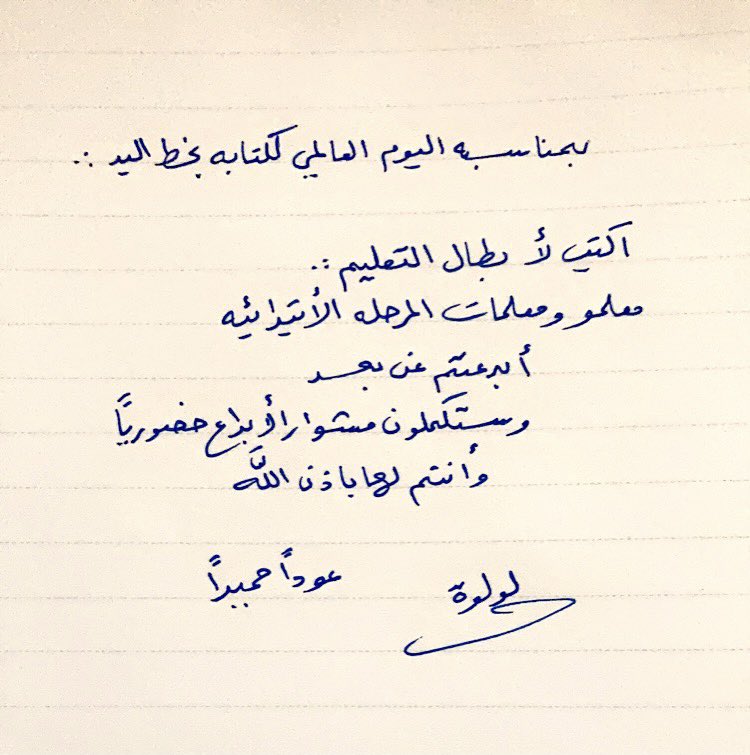 بمناسبه اليوم العالمي لكتابه بخط اليد :.
اكتب لأبطال التعليم :.
معلمو ومعلمات المرحله الأبتدائيه
أبدعتم عن بعد
وستكملون مشوار الأبداع حضورياً
وأنتم لها باذن اللَّه
عوداً حميداً
لولوة